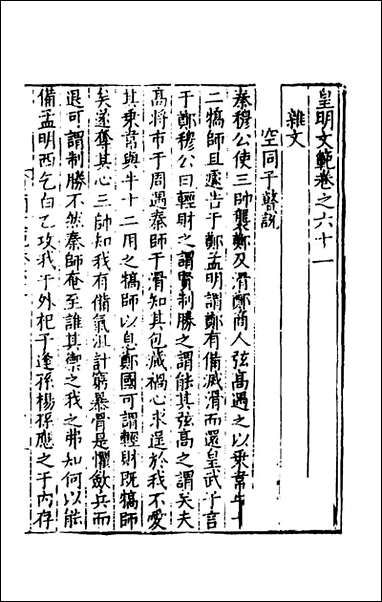 皇明文範卷之六十一
雜文
空同子瞽說
秦穆公使三帥襲鄭及滑鄭商人弦高遇之以乗韋牛十
二犒師且遽告于鄭孟明謂鄭有備滅滑而還皇武子言
于鄭穆公曰輕財之謂賢制勝之謂能其弦高之謂矣夫
高將市于周遇秦師于滑知其包藏禍心求逞於我不愛
其乗韋與牛十二用之犒師以息鄭國可謂輕財旣犒師
矣遂奪其心三帥知我有備氣沮計窮暴骨是懼斂兵而
退可謂制勝不然秦師奄至誰其禦之我之弗知何以能
備孟明西乞白乙攻我于外杞子逢孫楊孫應之于内存